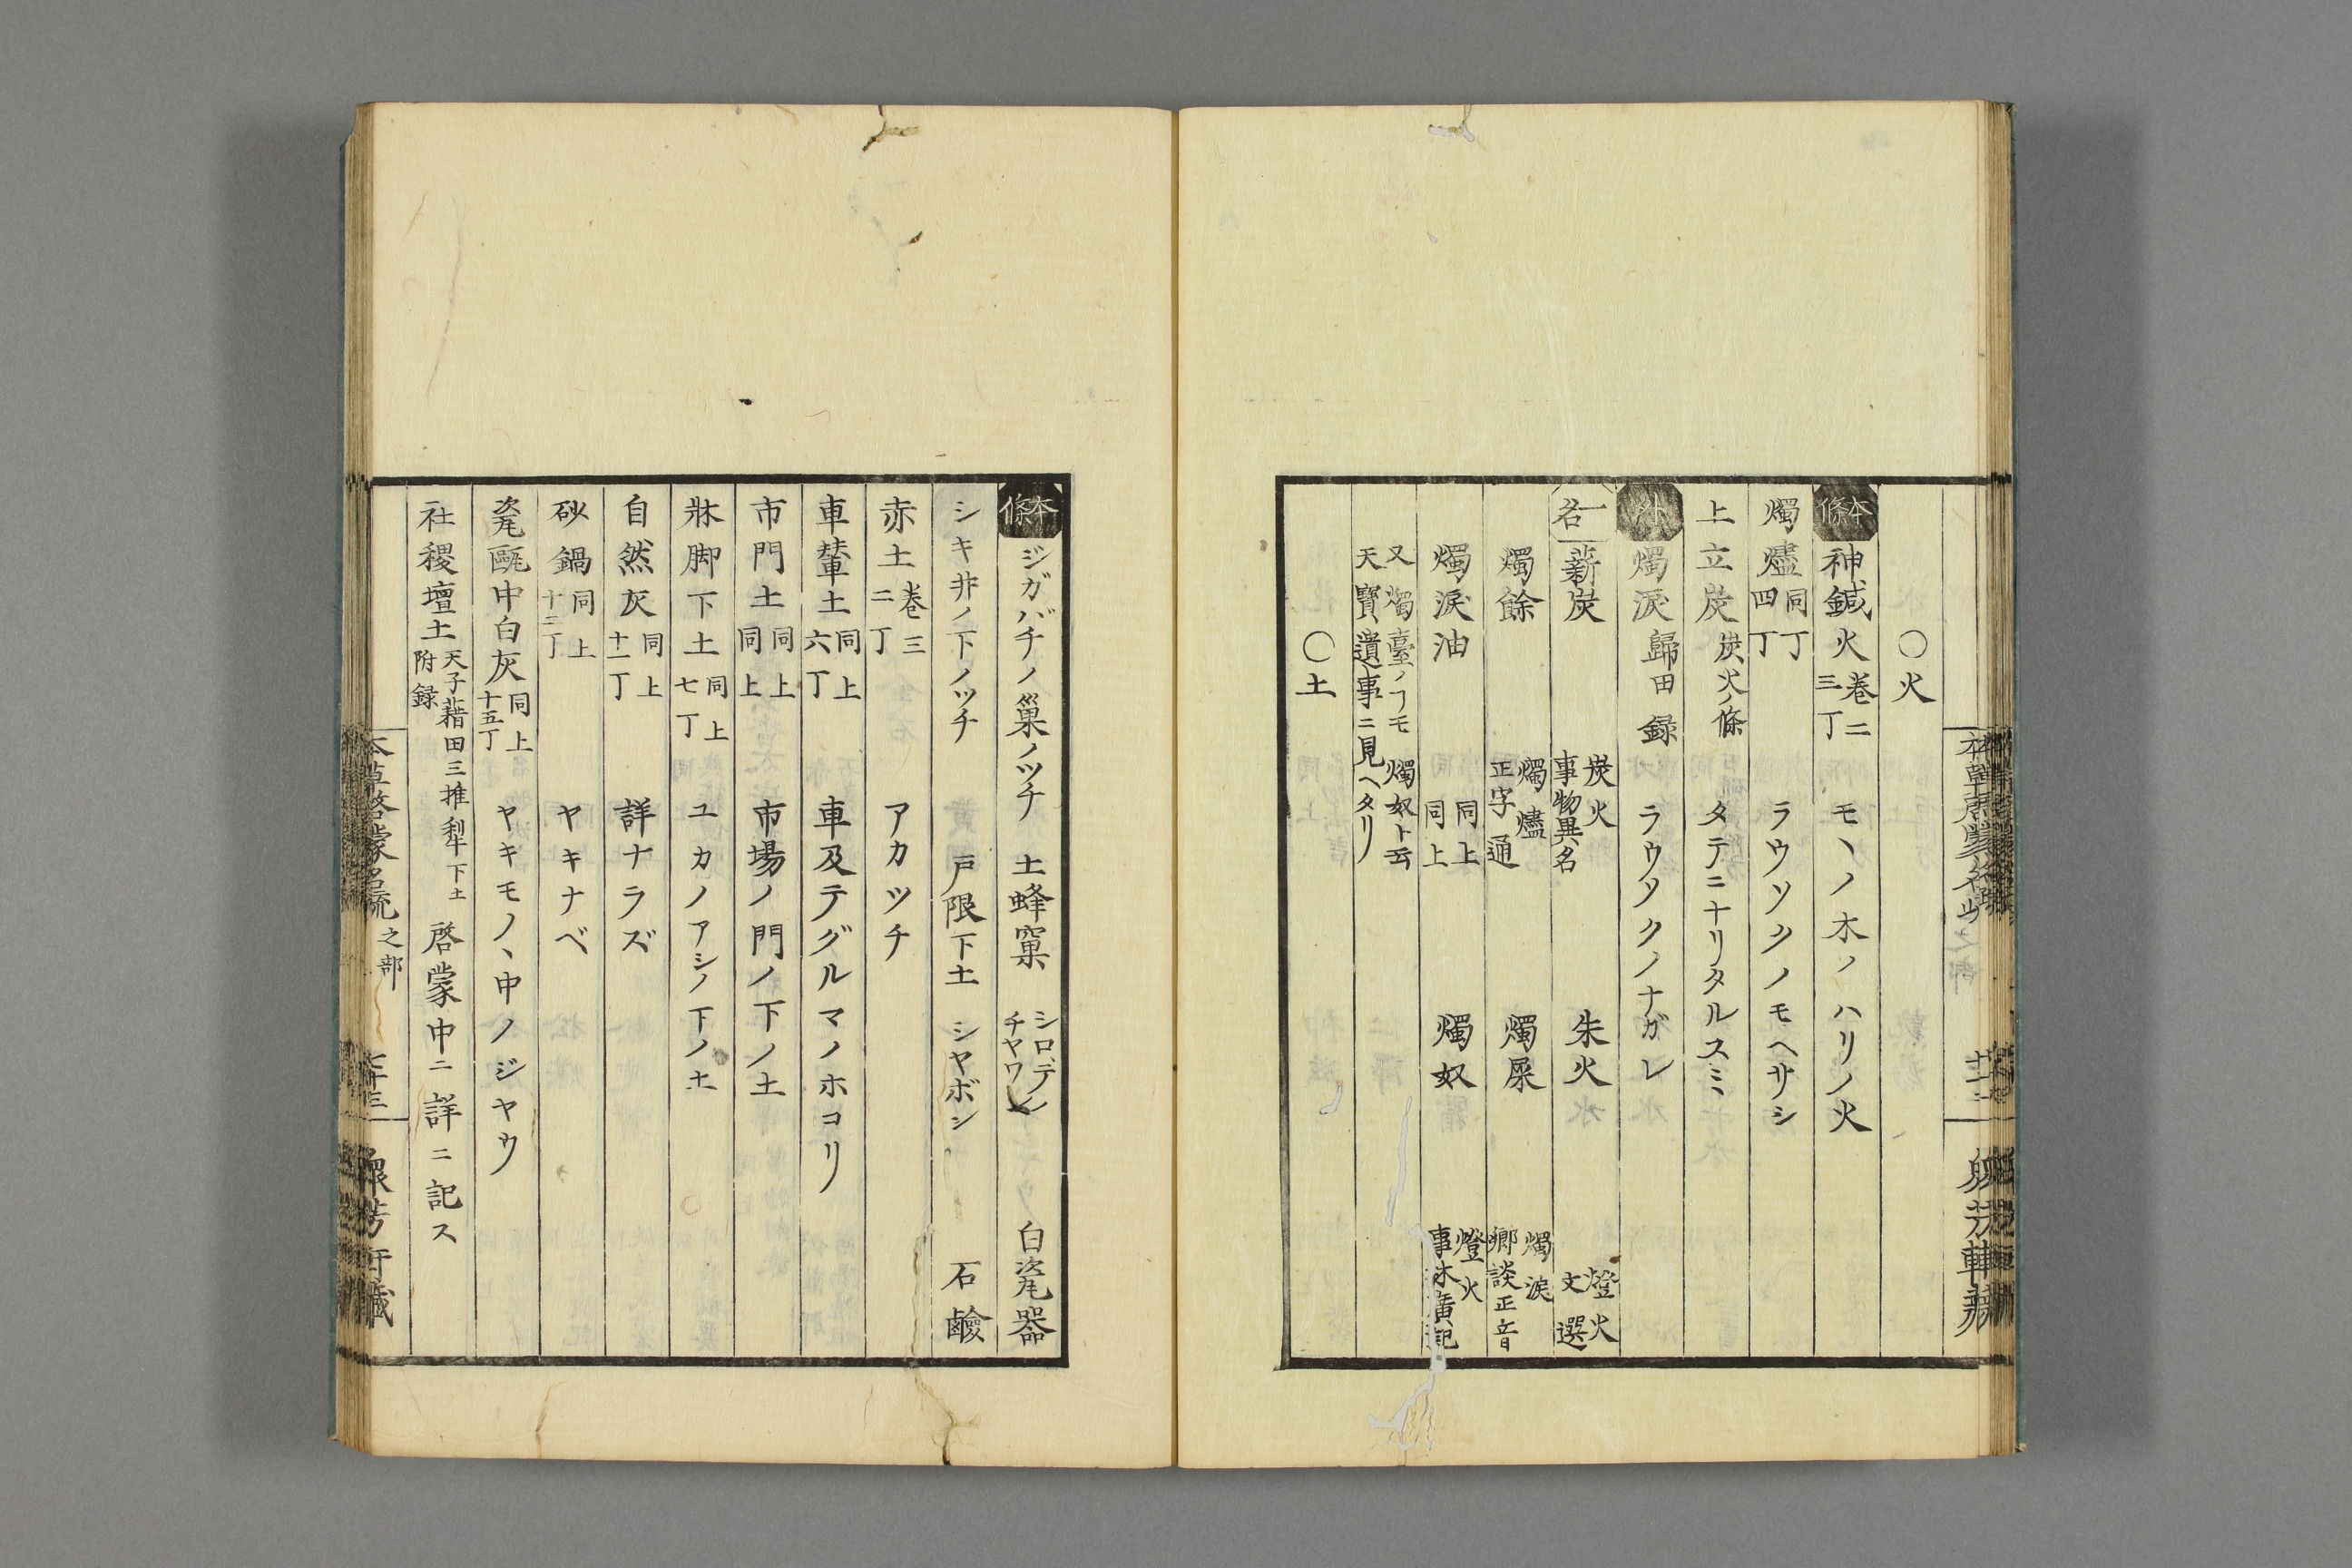 ○火
本條 神鍼火 卷二 三丁 モヽノ木ノハリノ火
燭燼 同丁 四丁 ラウソクノモヘサシ
上立炭 炭火ノ條 タテニナリタルスミ
外 燭淚 歸田録 ラウソクノナガレ
一名 薪炭 炭火 事物異名 朱火 燈火 文選
燭餘 燭燼 正字通 燭屎 燭涙 鄉談正音
燭淚油 同上 同上 燭奴 燈火 事林廣記
又燭臺ノヿモ燭奴ト云
天寶遺事ニ見ヘタリ
○土
本條 ジガバチノ巢ノツチ 土蜂窠 シロデノ チヤワン 白瓷器
シキ井ノ下ノツチ 戸限下土 シヤボン 石鹼
赤土 卷三 二丁 アカツチ
車輦土 同上 六丁 車及テグルマノホコリ
市門土 同上 同上 市場ノ門ノ下ノ土
牀脚下土 同上 七丁 ユカノアシノ下ノ土
自然灰 同上 十一丁 詳ナラズ
砂鍋 同上 十三丁 ヤキナベ
瓷甌中白灰 同上 十五丁 ヤキモノヽ中ノジヤウ
社稷壇土 天子藉田三推犁下土 附録 啓蒙中ニ詳ニ記ス
本草啓蒙名疏 之部